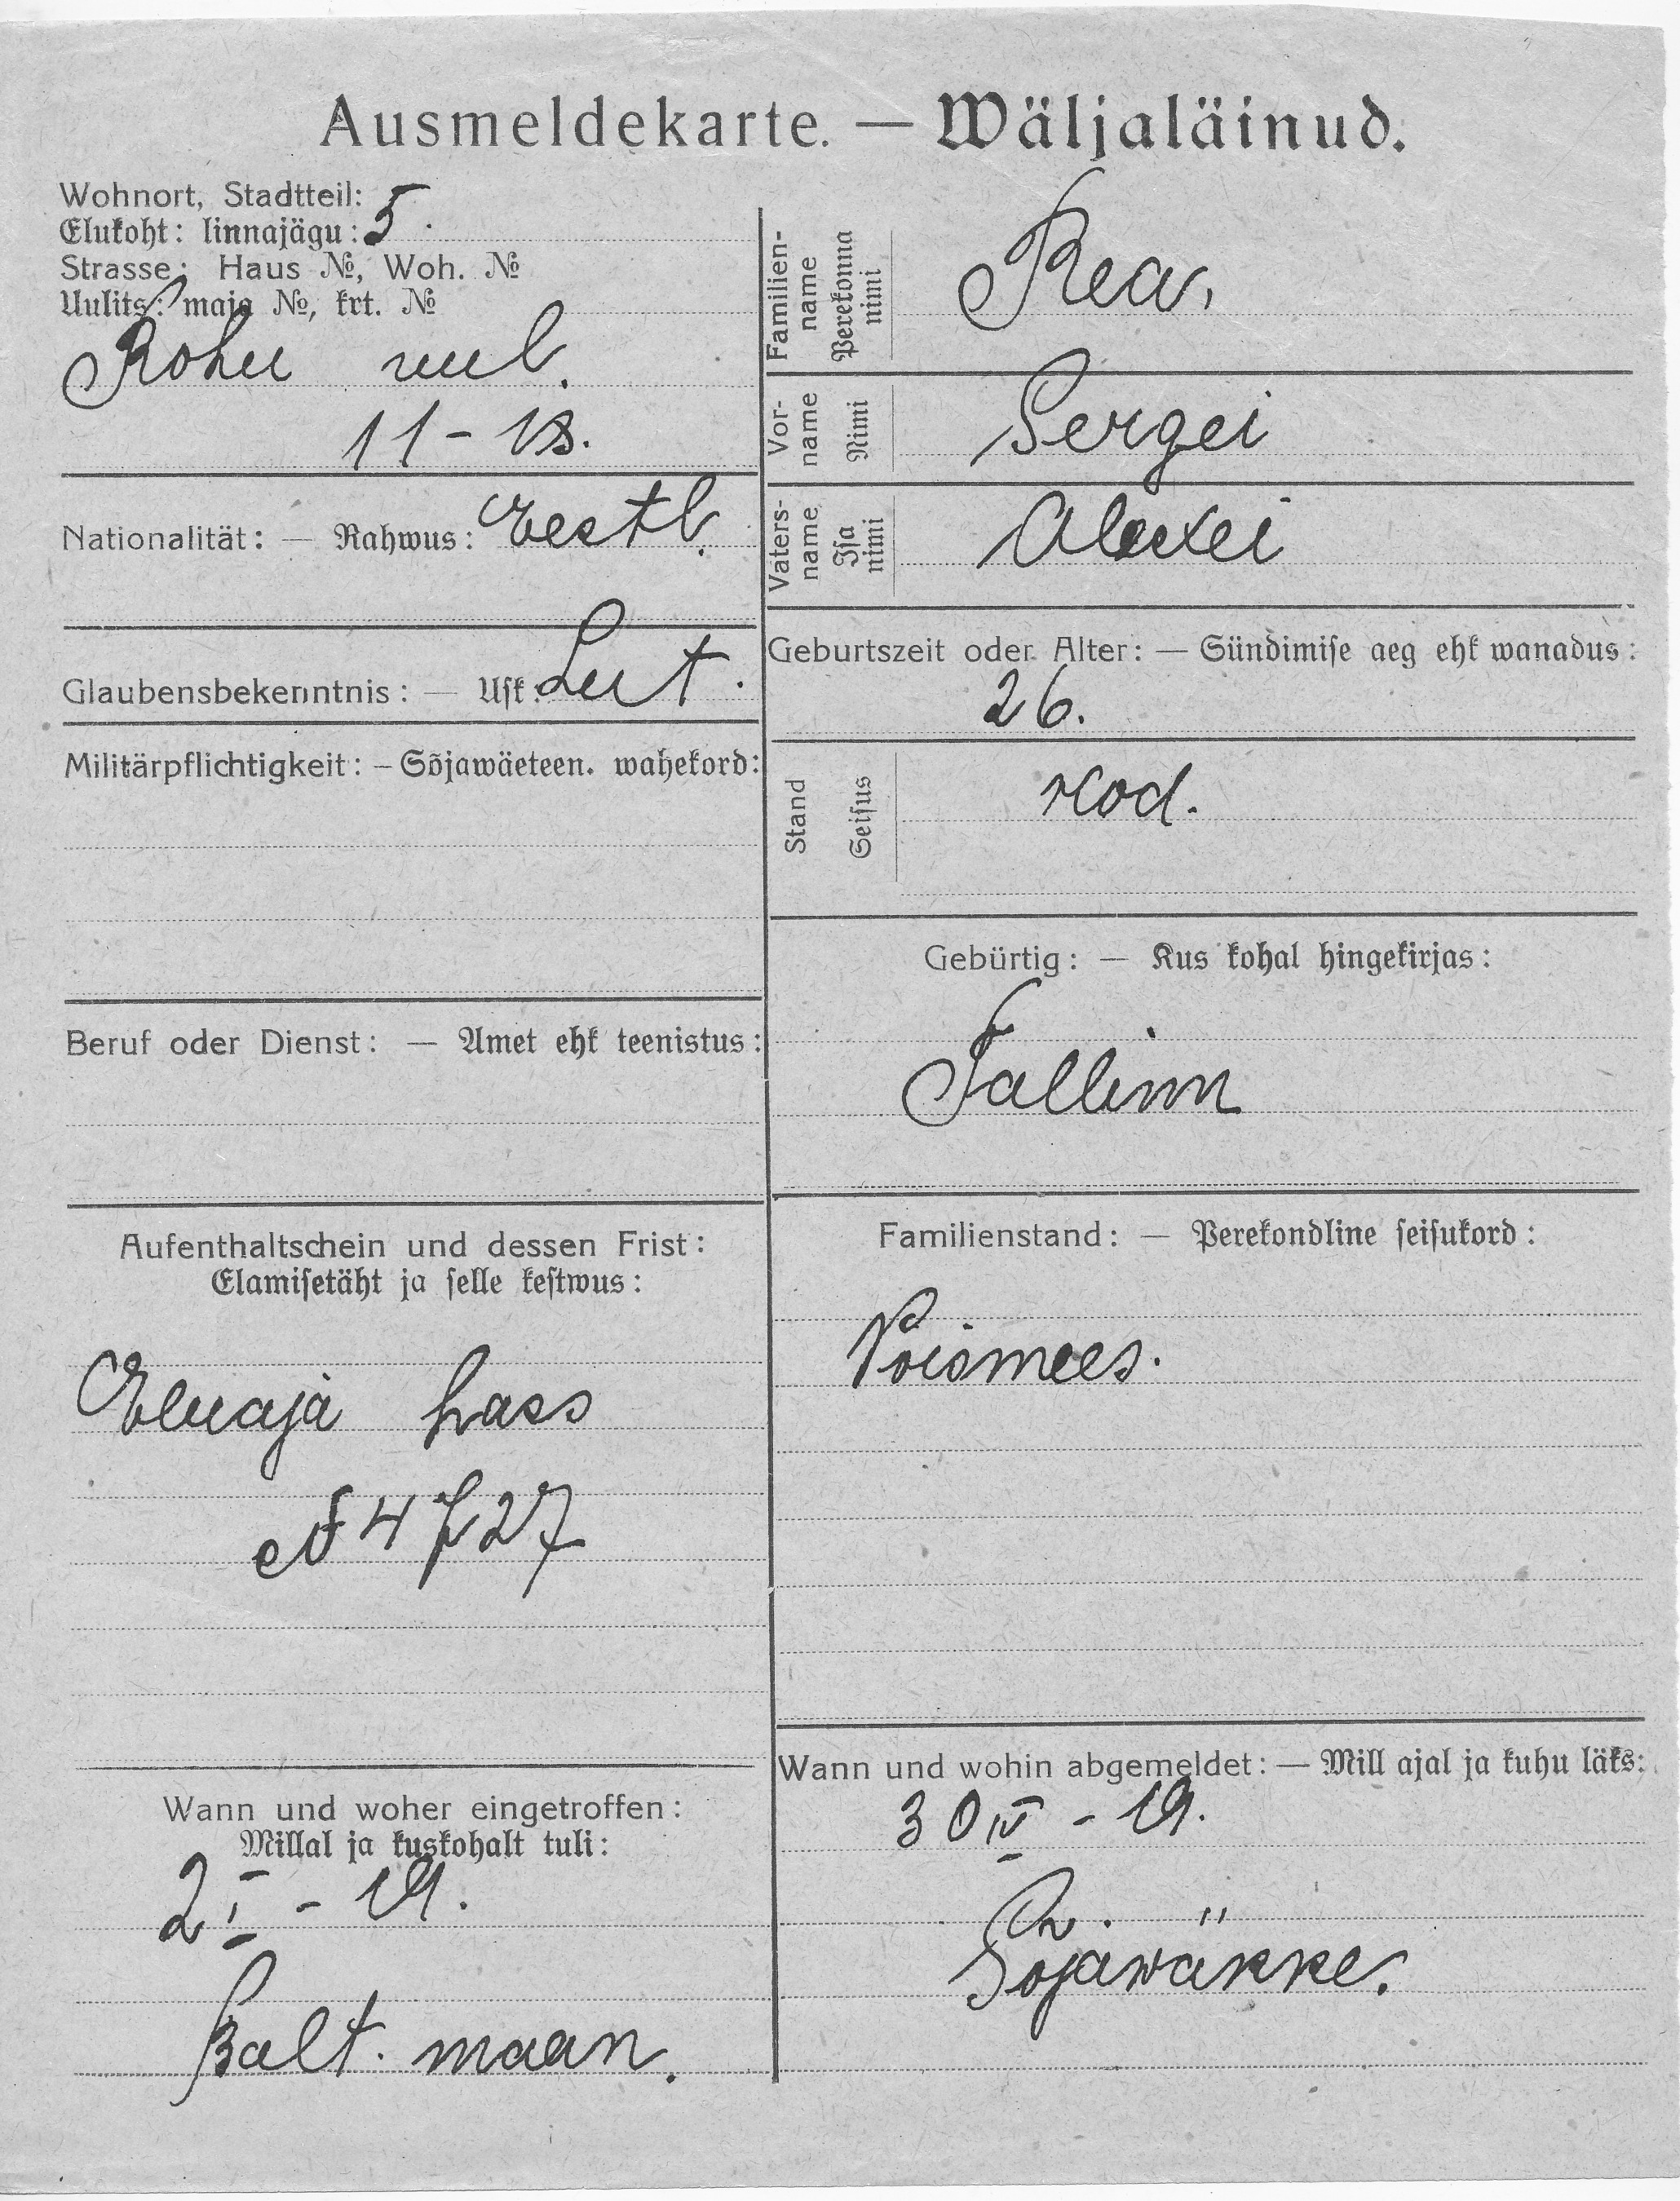 Ausmeldekarte. — Wäljaläinud.
Wohnort, Stadtteil:
Elukoht: linnajägu: 5.
Strasse: Haus №, Woh. №
Uulits: maja №, krt. №
Rohu uul.
11 - 18.
Nationalität: — Rahwus: Eestl.
Glaubensbekenntnis: — Usk: Lut.
Militärpflichtigkeit: — Sõjawäeteen. wahekord:
Beruf oder Dienst: — Amet ehk teenistus:
Aufenthaltschein und dessen Frist:
Elamisetäht ja selle kestwus:
Eluaja pass
№ 4727
Wann und woher eingetroffen:
Millal ja kuskohalt tuli:
2 I - 19.
Balt. maan.
Familien-
name
Perekonna
nimi
Rea,
Vor-
name
Nimi
Sergei
Vaters-
name
Isa
nimi
Aleksei
Geburtszeit oder Alter: — Sündimise aeg ehk wanadus:
26.
Stand
Seisus
Kod.
Gebürtig: — Kus kohal hingekirjas:
Tallinn
Familienstand: — Perekondline seisukord:
Poismees.
Wann und wohin abgemeldet: — Mill ajal ja kuhu läks:
30 IV - 19.
Sõjawäkke.